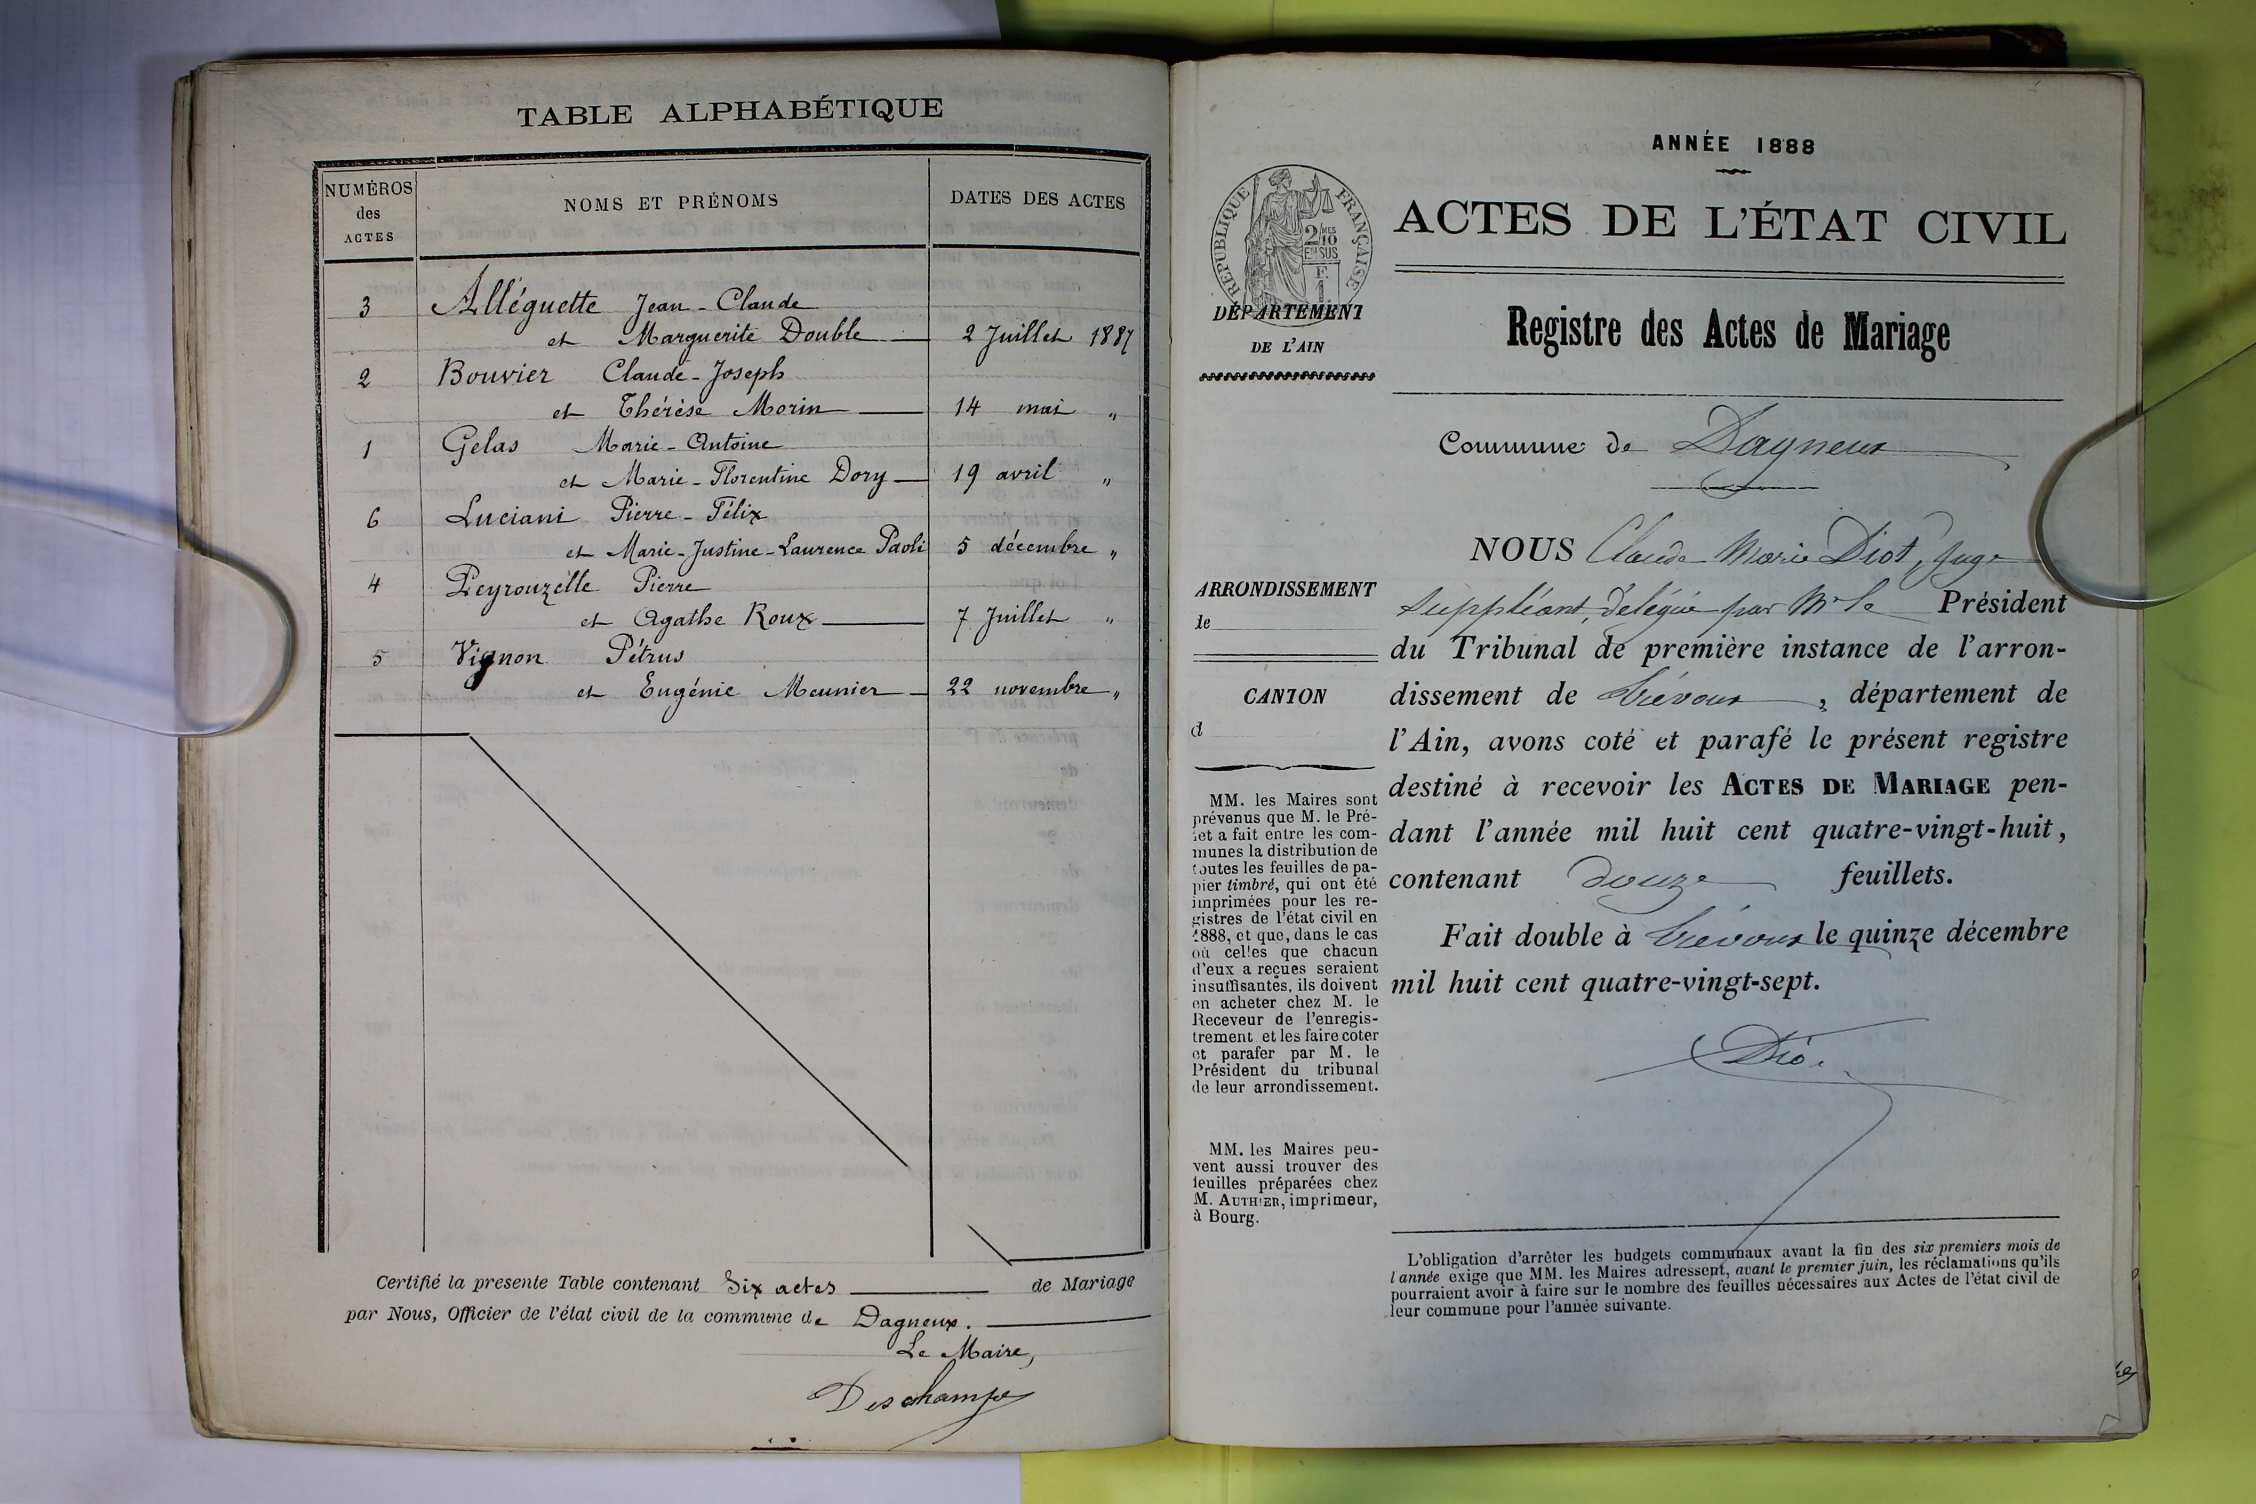 TABLE ALPHABÉTIQUE
NUMÉROS des ACTES
NOMS ET PRÉNOMS
DATES DES ACTES
3 Alléguette Jean-Claude
et Marguerite Double 2 Juillet 1887
2 Bouvier Claude-Joseph
et Thérèse Morin 14 mai "
1 Gelas Marie-Antoine
et Marie-Florentine Dory 19 avril "
6 Luciani Pierre-Félix
et Marie-Justine-Laurence Paoli 5 décembre "
4 Peyrouzelle Pierre
et Agathe Roux 7 Juillet "
5 Vignon Pétrus
et Eugénie Meunier 22 novembre "
Certifié la presente Table contenant Six actes de Mariage
par Nous, Officier de l'état civil de la commune de Dagneux.
Le Maire,
Deschamps
ANNÉE 1888
RÉPUBLIQUE FRANÇAISE
2/10 MES
EN SUS
F
1
DÉPARTEMENT
DE L'AIN
ACTES DE L'ÉTAT CIVIL
Registre des Actes de Mariage
Commune de Dagneux
ARRONDISSEMENT
de
CANTON
d
NOUS Claude Marie Diot, Juge
suppléant, délégué par Mr le Président
du Tribunal de première instance de l'arron-
dissement de Trévoux, département de
l'Ain, avons coté et parafé le présent registre
destiné à recevoir les ACTES DE MARIAGE pen-
dant l'année mil huit cent quatre-vingt-huit,
contenant douze feuillets.
Fait double à Trévoux le quinze décembre
mil huit cent quatre-vingt-sept.
Dio
MM. les Maires sont
prévenus que M. le Pré-
fet a fait entre les com-
munes la distribution de
toutes les feuilles de pa-
pier timbré, qui ont été
imprimées pour les re-
gistres de l'état civil en
1888, et que, dans le cas
où celles que chacun
d'eux a reçues seraient
insuffisantes, ils doivent
en acheter chez M. le
Receveur de l'enregis-
trement et les faire coter
et parafer par M. le
Président du tribunal
de leur arrondissement.
MM. les Maires peu-
vent aussi trouver des
feuilles préparées chez
M. AUTHIER, imprimeur,
à Bourg.
L'obligation d'arrêter les budgets communaux avant la fin des six premiers mois de
l'année exige que MM. les Maires adressent, avant le premier juin, les réclamations qu'ils
pourraient avoir à faire sur le nombre des feuilles nécessaires aux Actes de l'état civil de
leur commune pour l'année suivante.